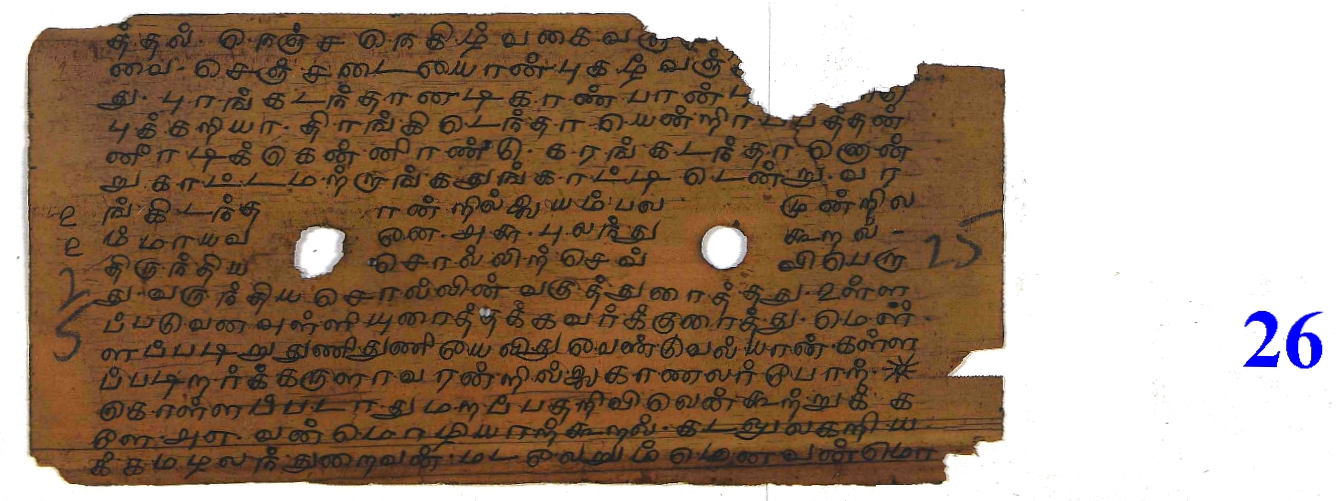 த்தல். நெஞ்ச நெகிழ் வகைவரு
வை. செஞ்சடையோன் புகழீ வஞ்
து. புரங்கடந்தானடி காண்பான்
புக்கறியா. திரங்கிடெந்தாயென்றிரப்பத்தன்
னீரடிக்கென்னிரண்டு. கரங்கடந்தானொன்
று காட்டமற்றுங்கதுங்காட்டிடென்று. வர
ங்கிடந்த ரான் றில்லையம்பல முன்றில
ம்மாயவ னே. அசு. புலந்து கூறல்
திருந்திய சொல்லிற் செவ் விபெரு
து. வருந்திய சொல்லின் வகுத்துரைத்தது. உள்ள
ப்படுவனவுள்ளியுரைத்தக்கவர்க்குரைத்து. மெள்
ளப்படிறுதுணிதுணியேலிதுவேண்டுவல்யான் கள்ள
ப்படிறர்க்கருளாவரன்றில்லைகாணலர்போற்.
கொள்ளப்படாதுமறப்பதறிவிலென்கூற்றுக்க
ளே. அஎ. வன்மொழியாற்கூறல். கடலுலகறிய
க்கமழலந்துறைவன். மடலேறும்மெனவன்மொ
25
26